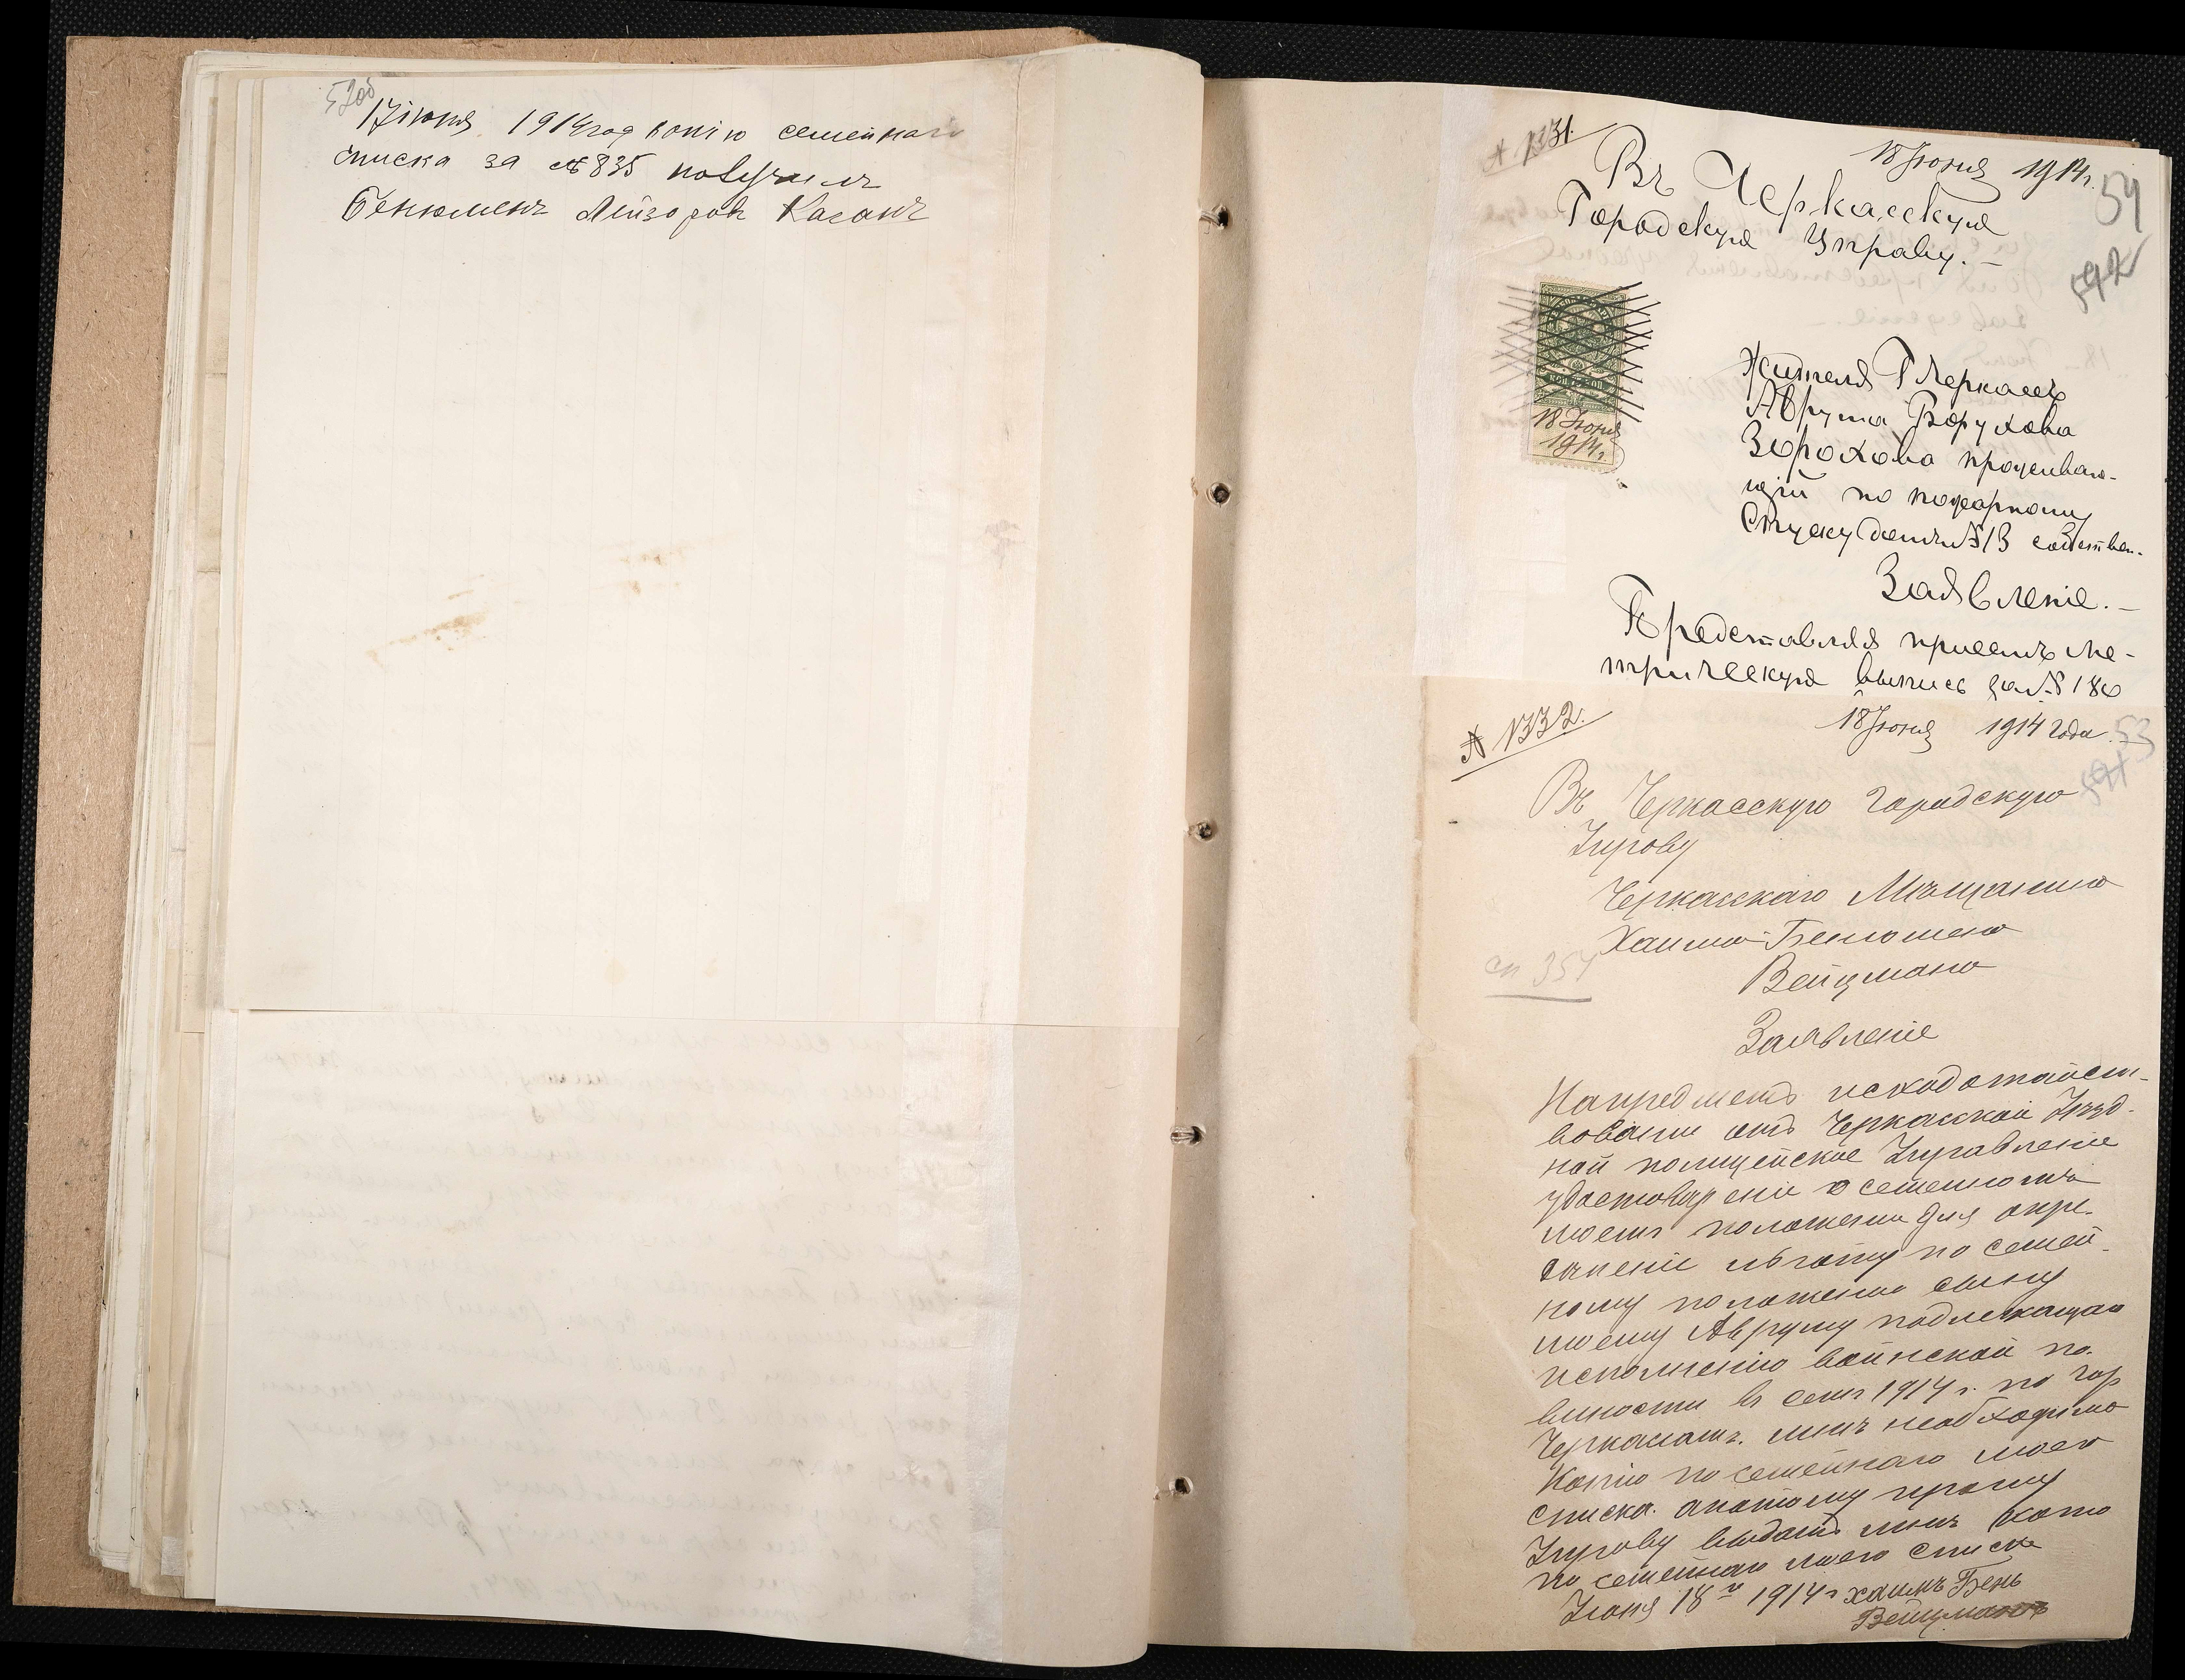 52об
17 іюня 1914 год копію семейнаго
списка за №835 получилъ
Бенюменъ Лейзоровъ Каганъ
№ 1331.
18 Іюня 1914 г.
54
592
Въ Черкасскую
Городскую Управу.-
18 Іюня
1914 г.
Жителя Г Черкассъ
Аврума Борухова
Зорохова проживаю-
щій по пожарному
Спуску домъ №13 собствен.
Заявленіе.-
Представляя присемъ ме-
трическую выпись за №180
№ 1332.
18 Іюня 1914 года.
53
591
Въ Черкасскую Городскую
Управу
Черкасскаго Мѣщанина
Хаима-Бенюмена
Вейцмана
сп 354
Заявленіе
Напредметъ исходотайст-
вованіи отъ Черкасской Уѣзд-
ной полицейское Управленіе
удостовѣреніе о семейномъ
моемъ положеніи для опре-
деленіе льготу по семей-
ному положенію сыну
моему Авруму подлежащаго
исполненію воинской по-
винности въ семъ 1914 г. по гор
Черкасамъ. мнѣ необходимо
Копію посемейнаго моего
списка. апотому прошу
Управу выдать мнѣ копію
по семейнаго моего списка
Іюня 18 1914 г хаимъ Бень
Вейцманъ